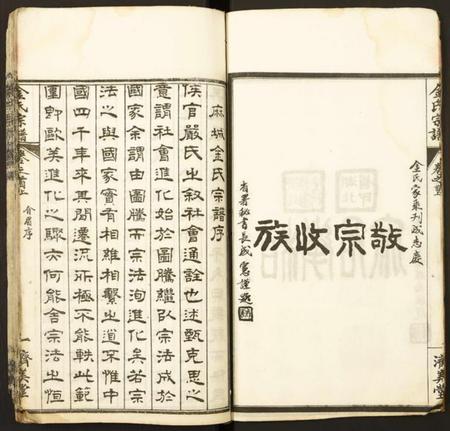 金氏宗譜 卷之首
濟美堂
金氏家乘刊成志慶
敬宗收族
省署秘書長成憲謹題
麻城金氏宗譜序
侯官嚴氏之叙社會通詮也述甄克思之
意謂社會進化始於圖騰繼以宗法成於
國家余謂由圖騰而宗法洵進化矣若宗
法之與國家實有相維相繫之道不惟中
國四千年來再閱遷流所極不能軼此範
圍即歐美進化之驟亦何能舍宗法之恒
金氏宗譜 卷之首上 介眉序 一 濟美堂